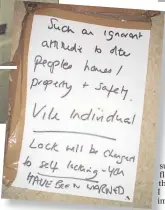 Such an ignorant
attitude to other
peoples homes/
property + safety.
Vile Individual
Lock will be changed
to self locking - you
HAVE BEEN WARNED
su
fl
th
I
im